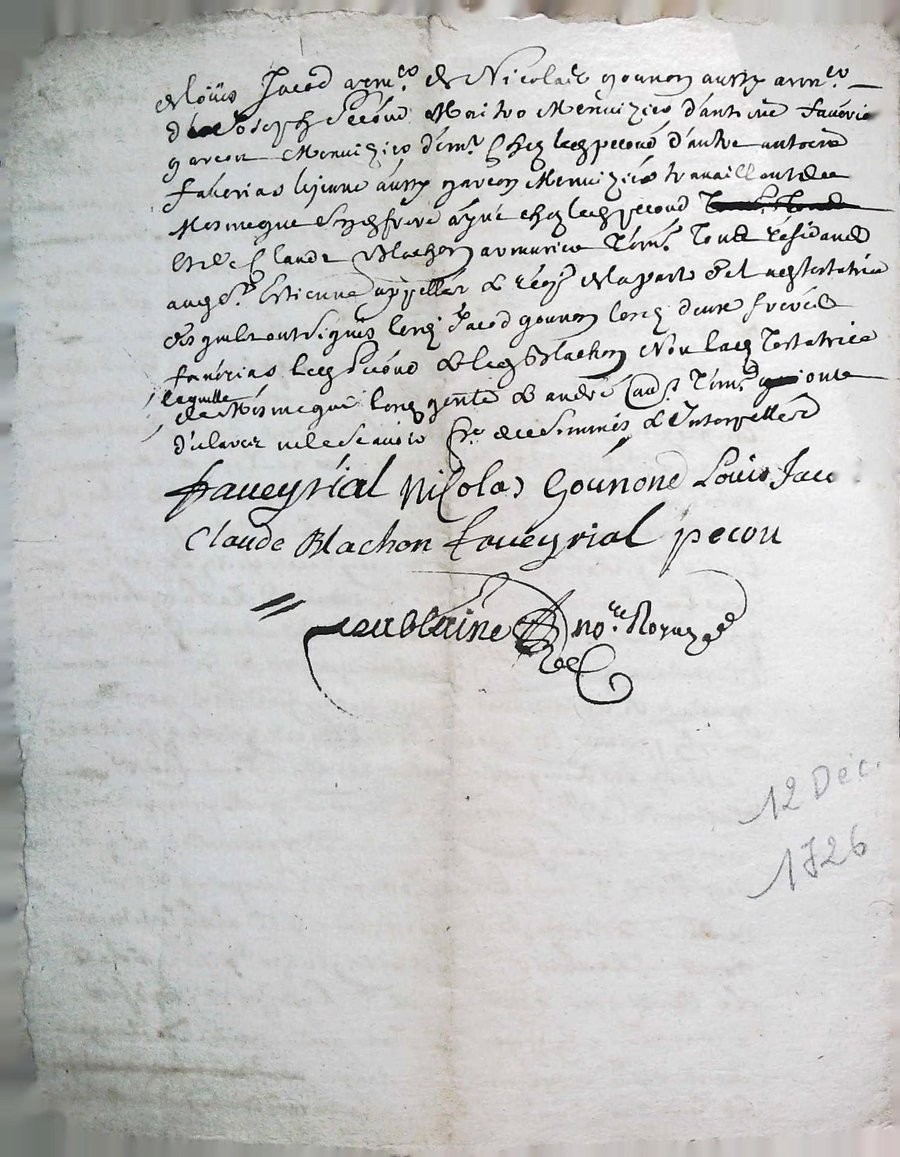 de Loüis Jacod armr. & Nicolas gounon aussy armr.
de Joseph Pecoud Maitre Menuizier d'antoine faverial
garcon Menuizier dem.t chez led. pecoud d'autre antoine
faverial le jeune aussy garcon Menuizier travaillant de
Mesme que son frere ayné chez led. pecoud
Et de Claude Blachon armurier tem.s tous residans
aud. St. Estienne appellez & req. de la part de lad. testatrice
Et qui ont signé led. Jacod gounon led. deux freres
faverial led. pecoud & led. Blachon Non lad. Testatrice
laquelle
de Mesme que led. & andré tem. ont
déclaré ne le scavoir de ce sommés & Interpellés
faveyrial Nicolas Gounond Louis Jaco
Claude Blachon faveyrial pecou
no.re Royal
12 Déc.
1726